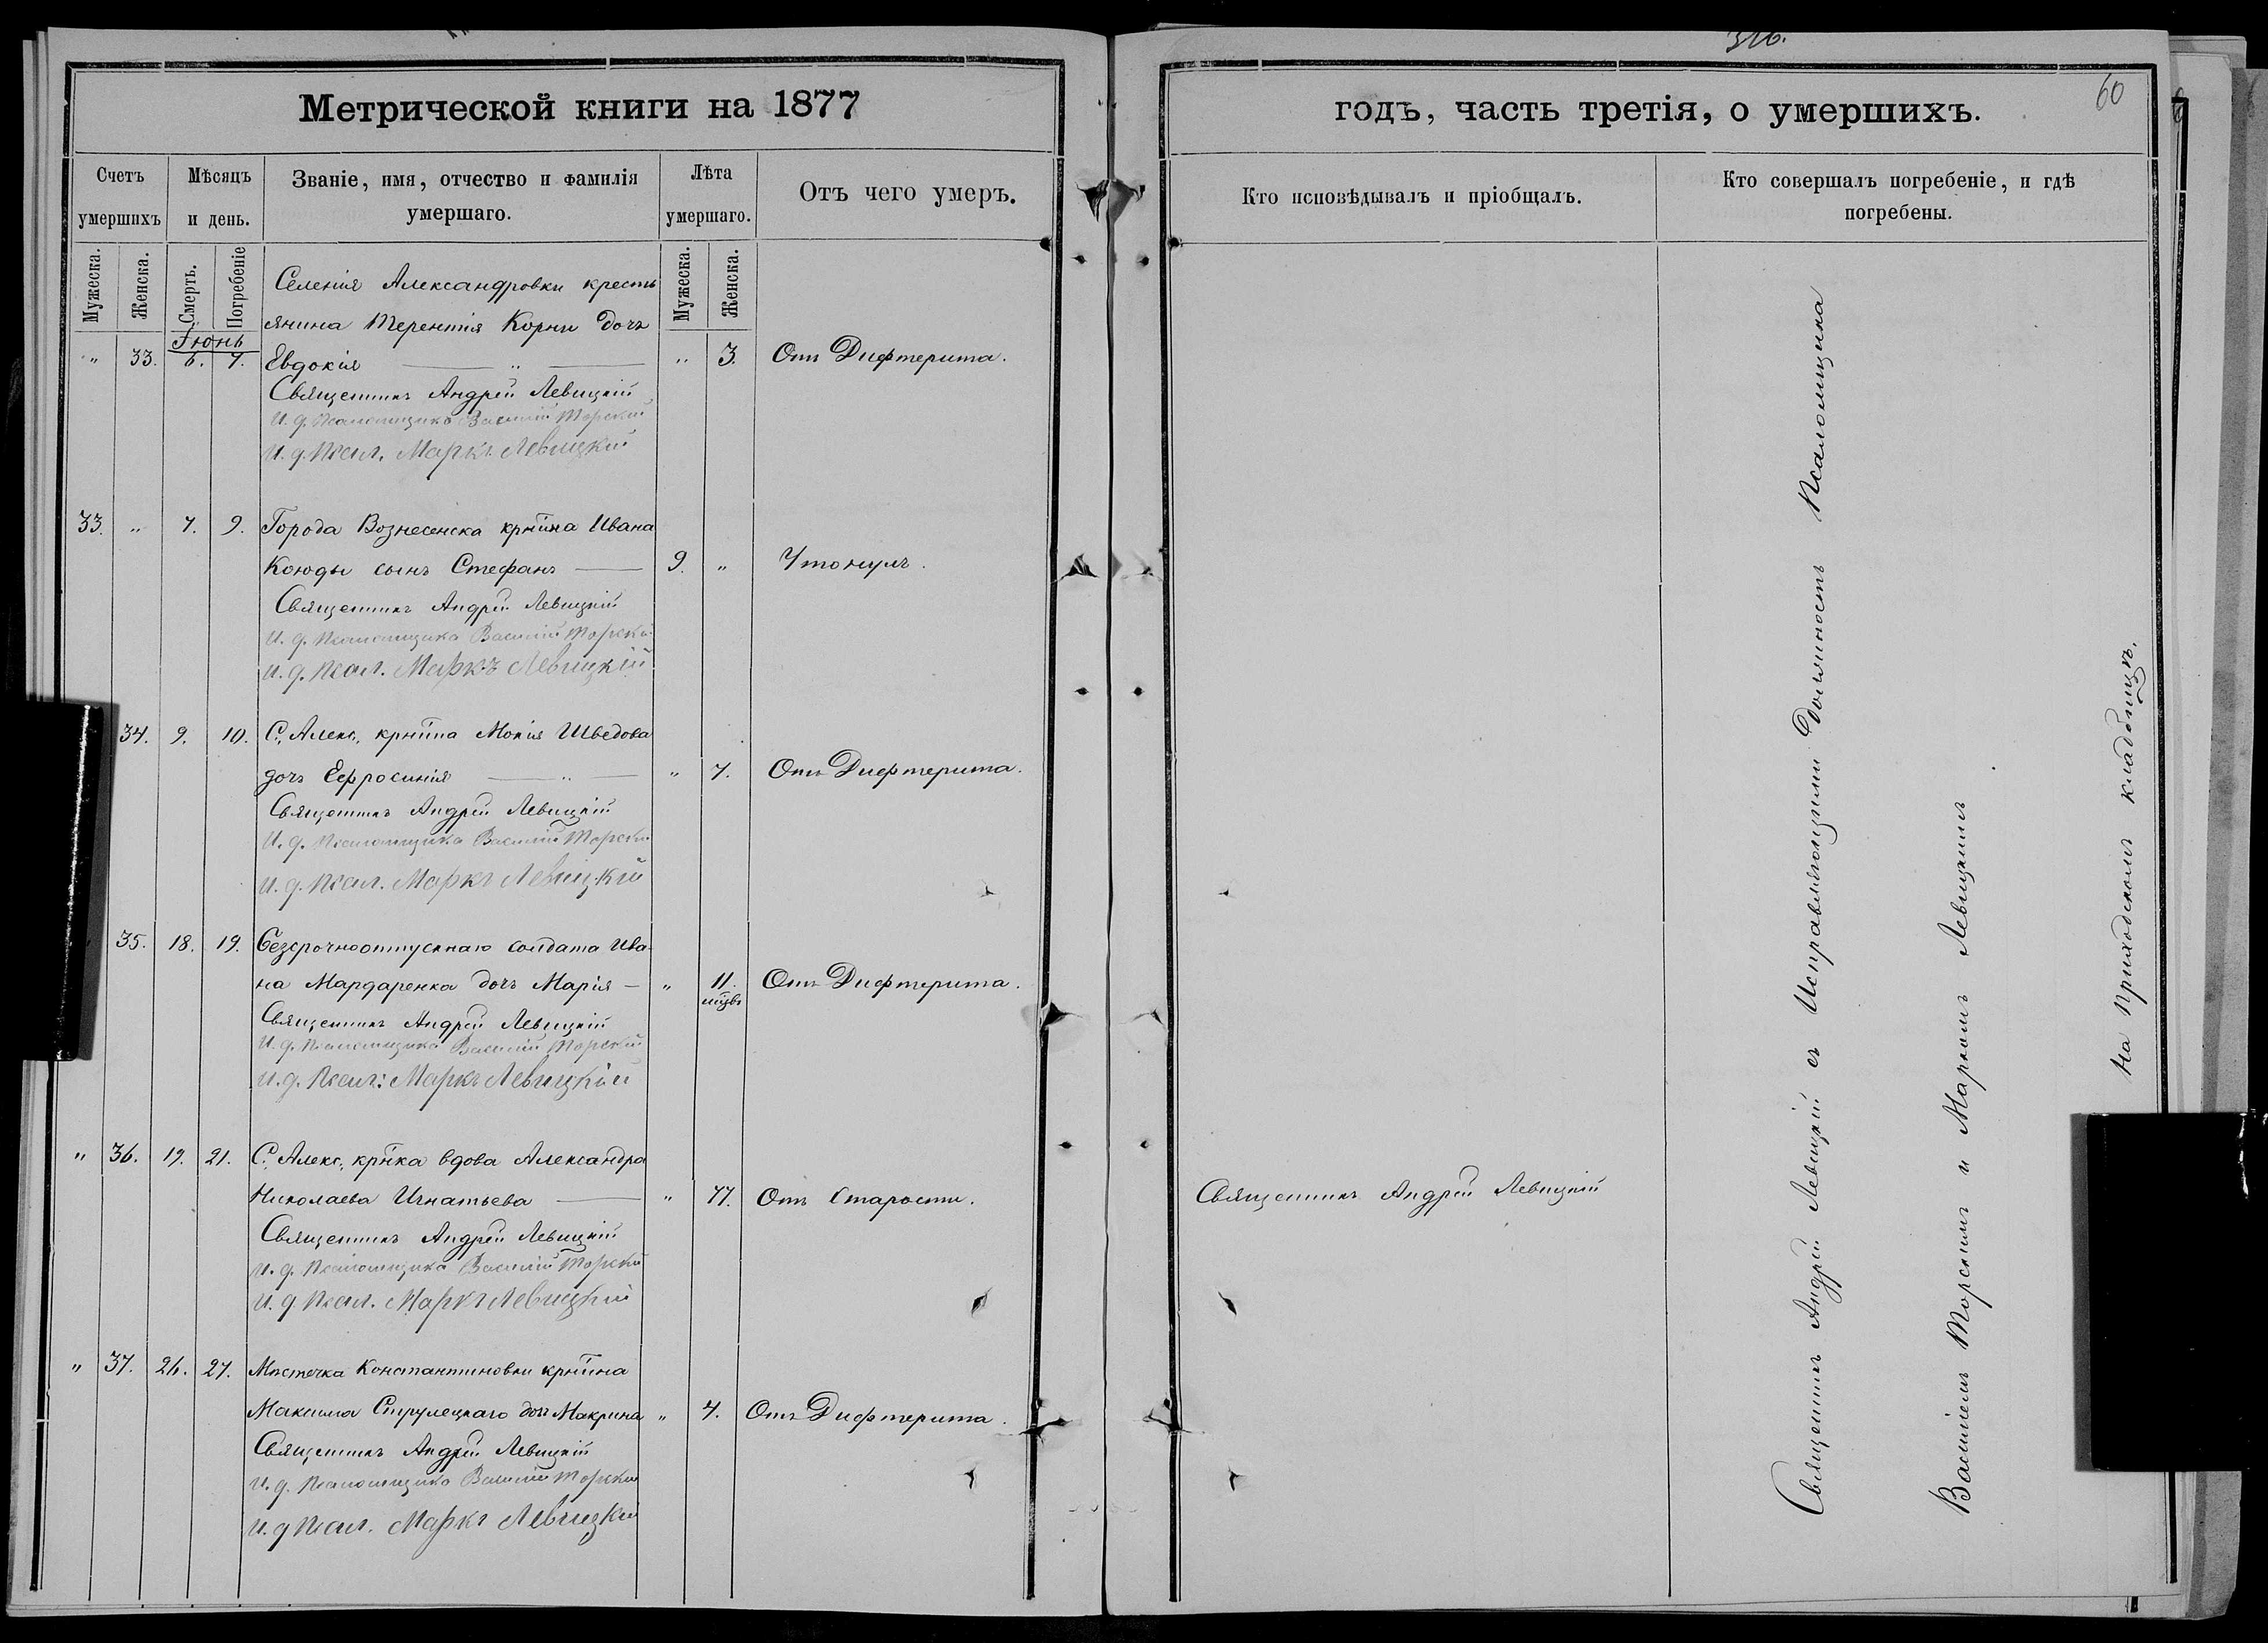 Метрической книги на 1877
Счетъ умершихъ
Мѣсяцъ и день.
Званіе, имя, отчество и фамилія умершаго.
Лѣта умершаго.
Отъ чего умеръ.
Мужеска.
Женска.
Смерть.
Погребеніе
Мужеска.
Женска.
Іюнь
Селенія Александровки кресть
янина Терентія Корни дочь
" 33. 6. 7. Евдокія " " 3. Отъ Дифтерита.
Священникъ Андрей Левицкій
И. д. Псаломщика Василій Торскій
И. д. Псал. Маркъ Левицкій
33. " 7. 9. Города Вознесенска крнина Ивана
Коюды сынъ Стефанъ 9. " Утонулъ.
Священникъ Андрей Левицкій
И. д. Псаломщика Василій Торскій
И. д. Псал. Маркъ Левицкій
34. 9. 10. С. Алекс. крнина Мокія Шведова
дочь Ефросинія " " 7. Отъ Дифтерита.
Священникъ Андрей Левицкій
И. д. Псаломщика Василій Торскій
И. д. Псал. Маркъ Левицкій
35. 18. 19. Безсрочноотпускнаго солдата Ива-
на Мардаренка дочь Марія " 11. мцвъ Отъ Дифтерита.
Священникъ Андрей Левицкій
И. д. Псаломщика Василій Торскій
И. д. Псал: Маркъ Левицкій
" 36. 19. 21. С. Алекс. крнка вдова Александра
Николаева Игнатьева " 77. Отъ Старости.
Священникъ Андрей Левицкій
И. д. Псаломщика Василій Торскій
И. д Псал. Маркъ Левицкій
" 37. 26. 27. Мѣстечка Константиновки крнина
Максима Струлецкаго дочь Макрина " 4. Отъ Дифтерита.
Священникъ Андрей Левицкій
И. д. Псаломщика Василій Торскій
И. д Псал. Маркъ Левицкій
316.
60
годъ, часть третія, о умершихъ.
Кто исповѣдывалъ и пріобщалъ.
Кто совершалъ погребеніе, и гдѣ погребены.
Священникъ Андрей Левицкій
Священникъ Андрей Левицкій съ Исправляющими Должность Псаломщика
Василіемъ Торскимъ и Маркомъ Левицкимъ
На Приходскомъ кладбищѣ.